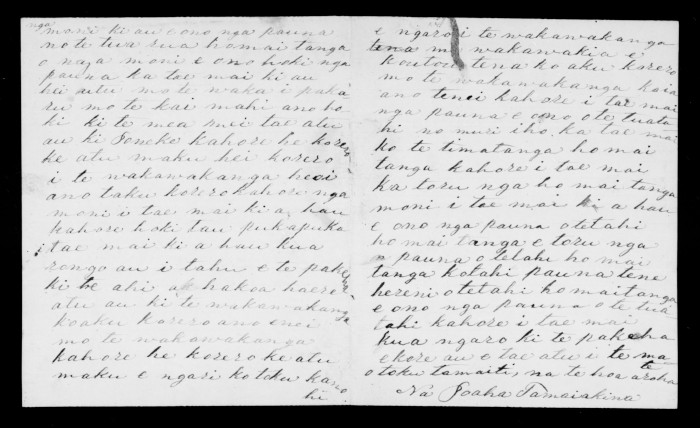 nga
moni ki au e ono nga pauna
no te tua rua homai tanga
o naga moni e ono hoki nga
pauna ka tae mai ki au
hei utu mo te waka i paka
ru mo te kai mahi ano ho
ki ki te mea mei tae atu
au ki Poneke kahore he korero
ke atu maku hei korero
i te wakawakanga heoi
ano taku korero kahore nga
moni i tae mai ki a hau
kahore hoki tau pukapuka
i tae mai ki a hau kua
rongo au i tahu e te pakeha
ki te ahi haere
atu au ki te wakawakanga
ko aku korero ano enei
mo te wakawakanga
kahore he korero ke atu
maku e ngari ko toku karo
hi
e ngaro i te wakawakanga
tena me wakawakia e
koutou tena ko aku korero
mo te wakawakanga kaia
ano tenei kahore i tae mai
nga pauna e ono o te tuata
hi no muri iho ka tae mai
ko te timatanga homai
tanga kahore i tae mai
ka toru nga ho mai tanga
moni i tae mai ki a hau
e ono nga pauna o tetahi
ho mai tanga e toru nga
pauna o tetahi ho mai
tanga kotahi pauna tene
hereni o tetahi homaitanga
e ono nga pauna o te tua
tahi kahore i tae mai
kua ngaro ki te pakeha
ekore au e tae atu i te ma
te
o toku tamaiti, na te hoa aroha
Na Joaha Tamaiakina